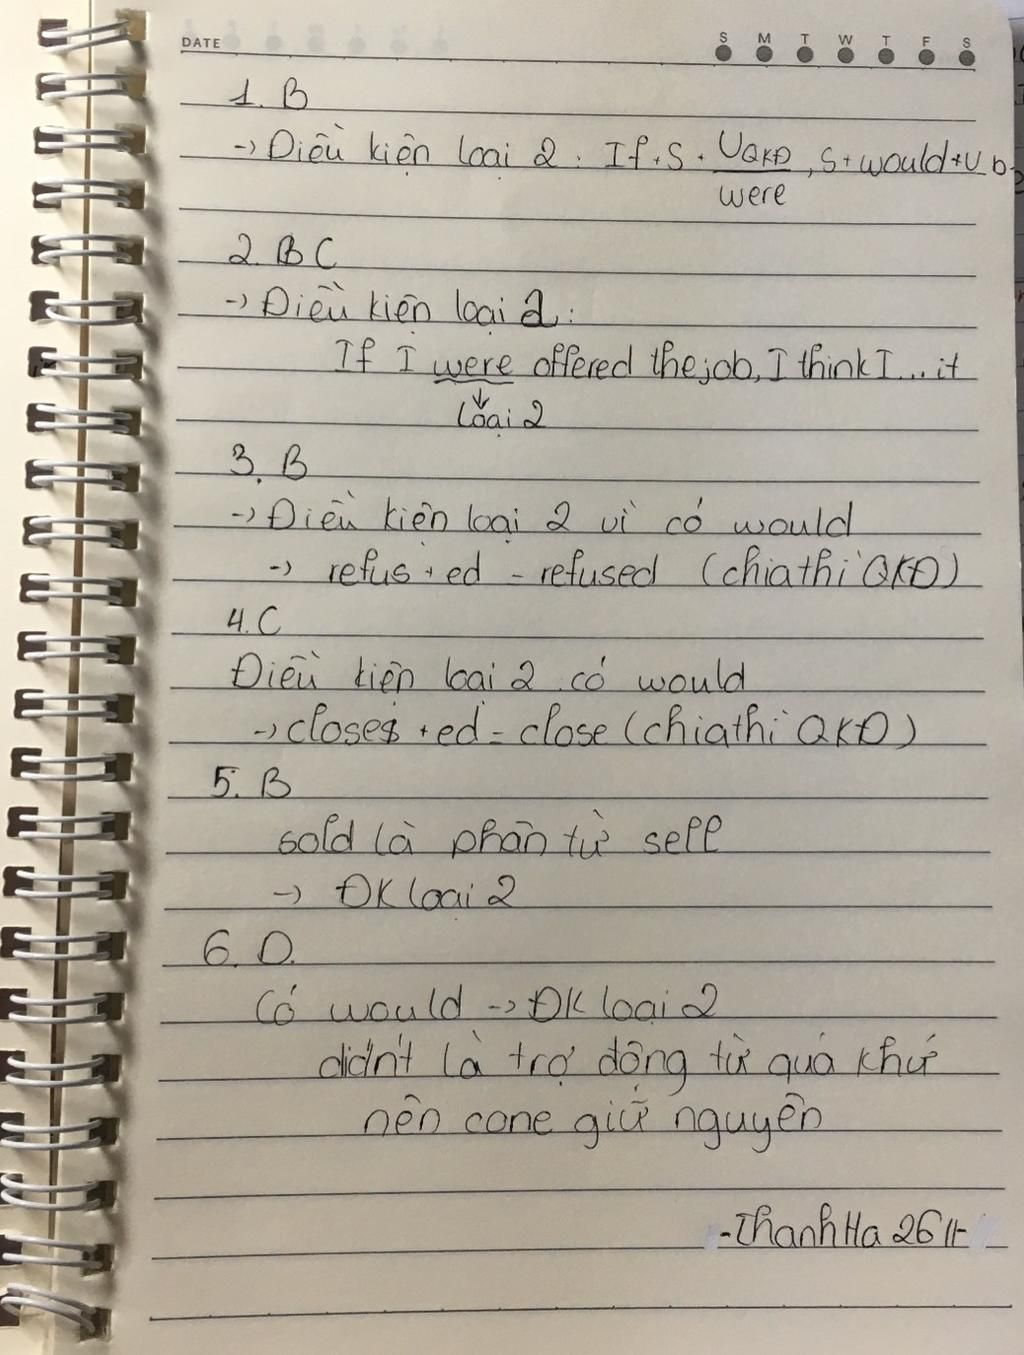 DATE
S M T W T F S
1. B
-> Điều kiện loại 2 : If + S + VQKĐ , S + would + V b
were
2. B C
-> Điều kiện loại 2 :
If I were offered the job, I think I ... it
loại 2
3. B
-> Điều kiện loại 2 vì có would
-> refus + ed = refused (chia thì QKĐ)
4. C
Điều kiện loại 2 có would
-> closes + ed = close (chia thì QKĐ)
5. B
sold là phân từ sell
-> ĐK loại 2
6. D.
Có would -> ĐK loại 2
didn't là trợ động từ quá khứ
nên cone giữ nguyên